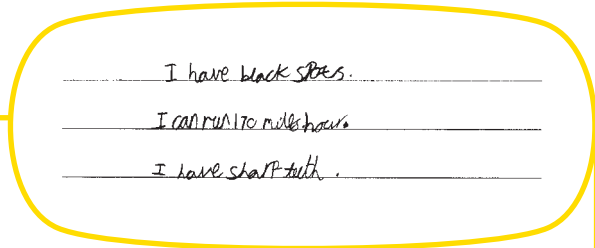 I have black spots.
I can run 170 miles hour.
I have sharp teeth.